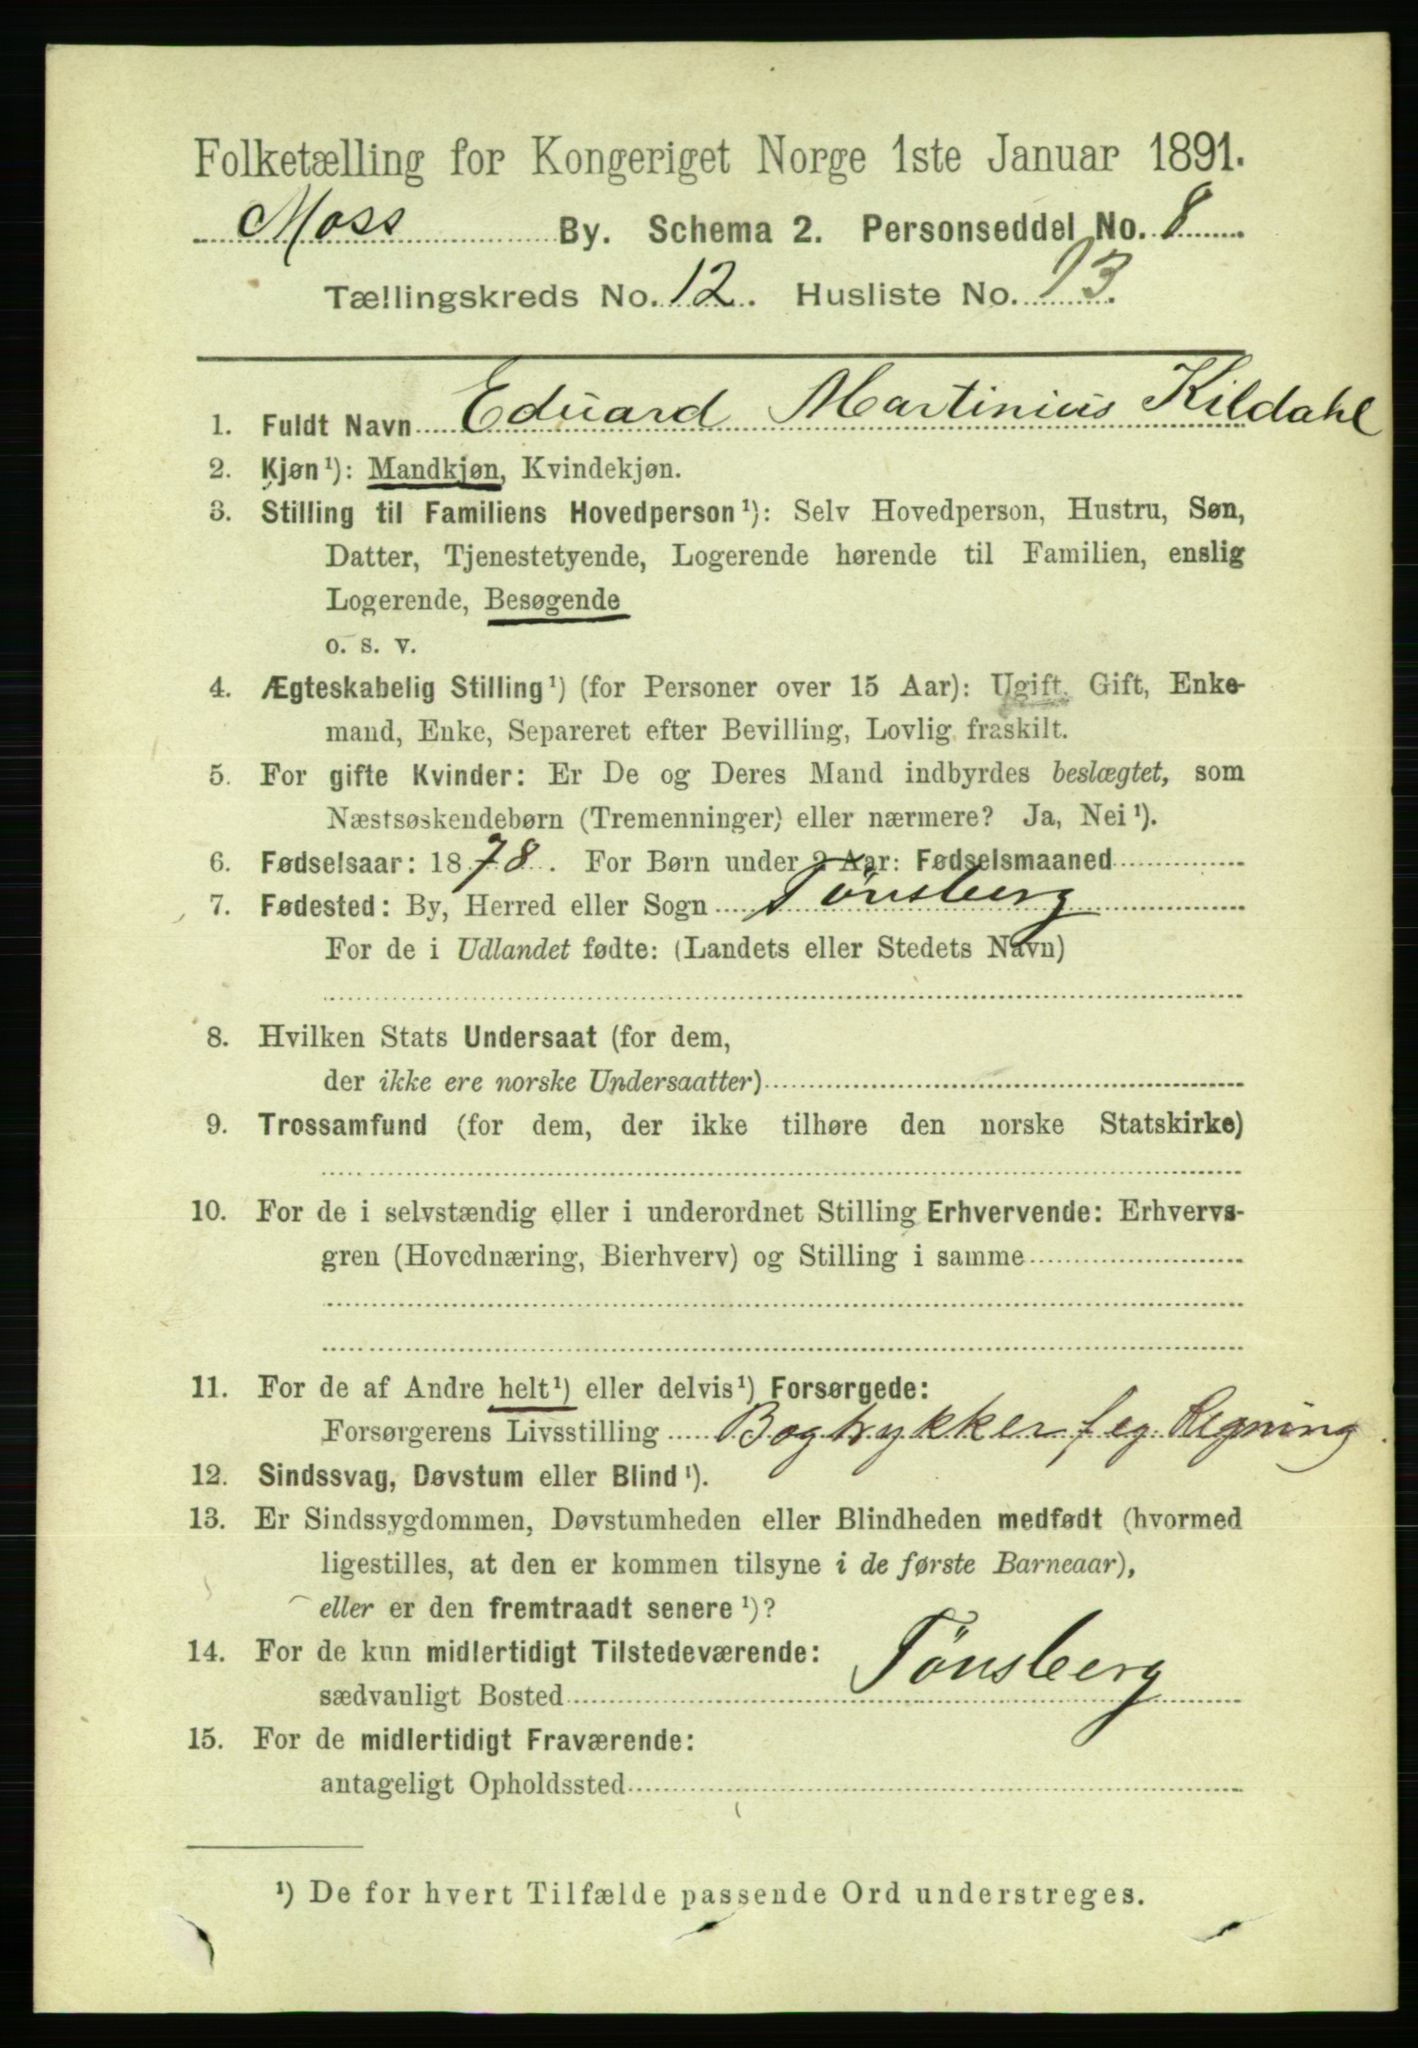 Folketælling for Kongeriget Norge 1ste Januar 1891.
Moss By. Schema 2. Personseddel No. 8
Tællingskreds No. 12. Husliste No. 13.
1. Fuldt Navn Eduard Martinius Kildahl
2. Kjøn¹): Mandkjøn, Kvindekjøn.
3. Stilling til Familiens Hovedperson¹): Selv Hovedperson, Hustru, Søn,
Datter, Tjenestetyende, Logerende hørende til Familien, enslig
Logerende, Besøgende
o. s. v.
4. Ægteskabelig Stilling¹) (for Personer over 15 Aar): Ugift, Gift, Enke-
mand, Enke, Separeret efter Bevilling, Lovlig fraskilt.
5. For gifte Kvinder: Er De og Deres Mand indbyrdes beslægtet, som
Næstsøskendebørn (Tremenninger) eller nærmere? Ja, Nei¹).
6. Fødselsaar: 1878. For Børn under 2 Aar: Fødselsmaaned
7. Fødested: By, Herred eller Sogn Tönsberg
For de i Udlandet fødte: (Landets eller Stedets Navn)
8. Hvilken Stats Undersaat (for dem,
der ikke ere norske Undersaatter)
9. Trossamfund (for dem, der ikke tilhøre den norske Statskirke)
10. For de i selvstændig eller i underordnet Stilling Erhvervende: Erhvervs-
gren (Hovednæring, Bierhverv) og Stilling i samme
11. For de af Andre helt¹) eller delvis¹) Forsørgede:
Forsørgerens Livsstilling Bogtrykker f eg. Regning
12. Sindssvag, Døvstum eller Blind¹).
13. Er Sindssygdommen, Døvstumheden eller Blindheden medfødt (hvormed
ligestilles, at den er kommen tilsyne i de første Barneaar),
eller er den fremtraadt senere¹)?
14. For de kun midlertidigt Tilstedeværende:
sædvanligt Bosted Tönsberg
15. For de midlertidigt Fraværende:
antageligt Opholdssted
¹) De for hvert Tilfælde passende Ord understreges.